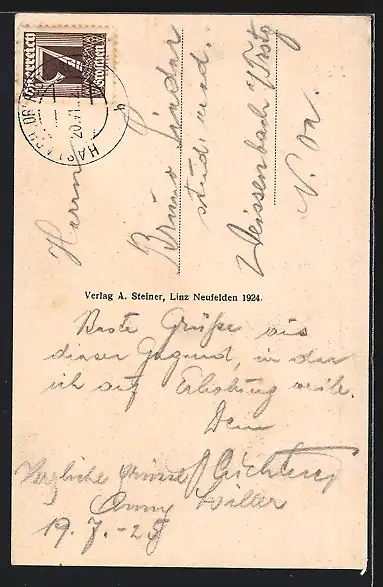 Österreich
7
Groschen
HASLACH
20.VI
b
Herrn
Bruno Linder
stud. med.
Weissenbach
N. Ö.
Verlag A. Steiner, Linz Neufelden 1924.
Beste Grüße aus
dieser Gegend, in der
ich auf Erholung weile.
Dein
Herzliche Grüsse
Anny
19. 7. - 28